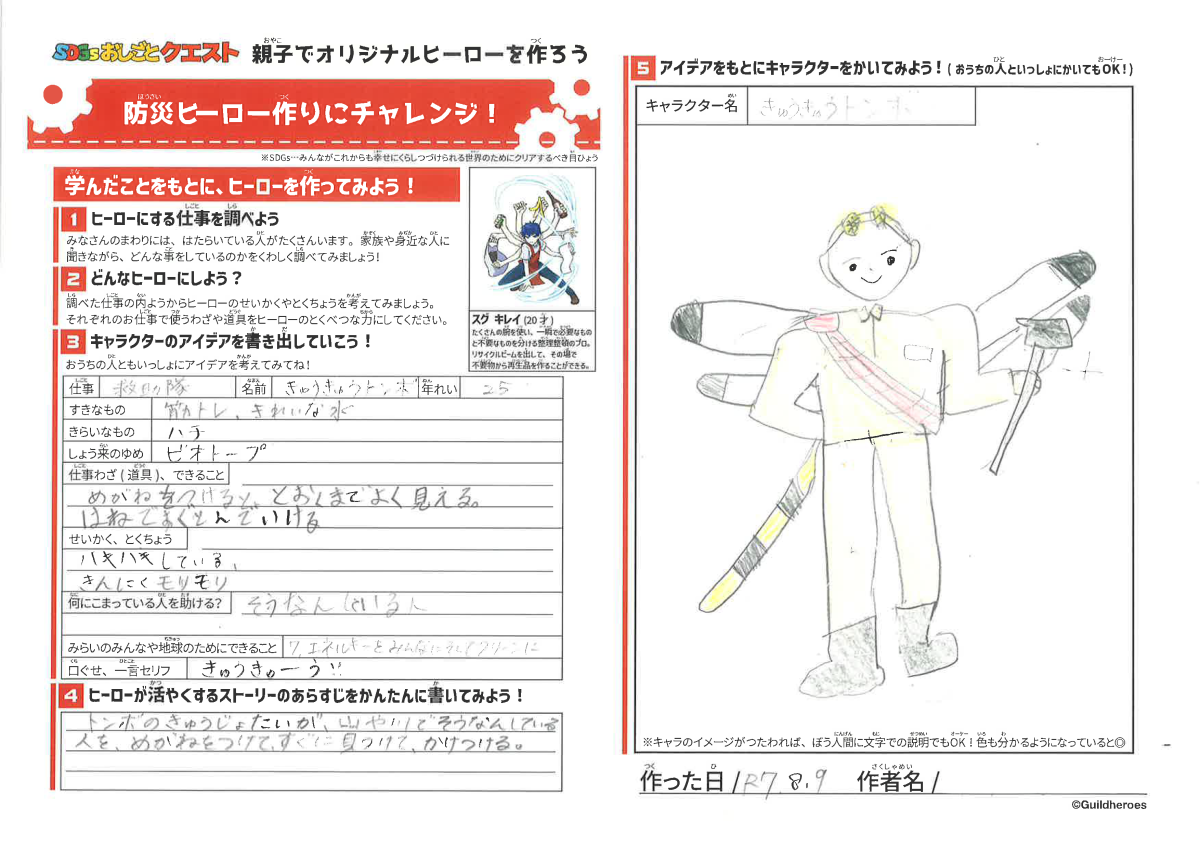 SDGsおしごとクエスト 親子でオリジナルヒーローを作ろう
防災ヒーロー作りにチャレンジ！
※SDGs…みんながこれからも幸せにくらしつづけられる世界のためにクリアするべき目ひょう
学んだことをもとに、ヒーローを作ってみよう！
1 ヒーローにする仕事を調べよう
みなさんのまわりには、はたらいている人がたくさんいます。家族や身近な人に
聞きながら、どんな事をしているのかをくわしく調べてみましょう！
2 どんなヒーローにしよう？
調べた仕事の内ようからヒーローのせいかくやとくちょうを考えてみましょう。
それぞれのお仕事で使うわざや道具をヒーローのとくべつな力にしてください。
スグ キレイ(20才)
たくさんの腕を使い、一瞬で必要なもの
と不要なものを分ける整理整頓のプロ。
リサイクルビームを出して、その場で
不要物から再生品を作ることができる。
3 キャラクターのアイデアを書き出していこう！
おうちの人ともいっしょにアイデアを考えてみてね！
仕事 救助隊 名前 きゅうきゅうトンボ 年れい 25
すきなもの 筋カトレ、きれいな水
きらいなもの ハチ
しょう来のゆめ ビオトープ
仕事わざ(道具)、できること
めがねをつけると、とおくまでよく見える。
はねで まくとんでいける
せいかく、とくちょう
ハキハキしている、
きんにくモリモリ
何にこまっている人を助ける？ そうなんしている人
みらいのみんなや地球のためにできること 7、エネルギーをみんなにそしてクリーンに
口ぐせ、一言セリフ きゅうきゅーう!!
4 ヒーローが活やくするストーリーのあらすじをかんたんに書いてみよう！
トンボのきゅうじょたいが、山や川でそうなんしている
人を、めがねをつけて、すぐに見つけて、かけつける。
5 アイデアをもとにキャラクターをかいてみよう！(おうちの人といっしょにかいてもOK！)
キャラクター名 きゅうきゅうトンボ
※キャラのイメージがつたわれば、ぼう人間に文字での説明でもOK！色も分かるようになっていると◎
作った日 / R7.8.9 作者名 /
©Guildheroes